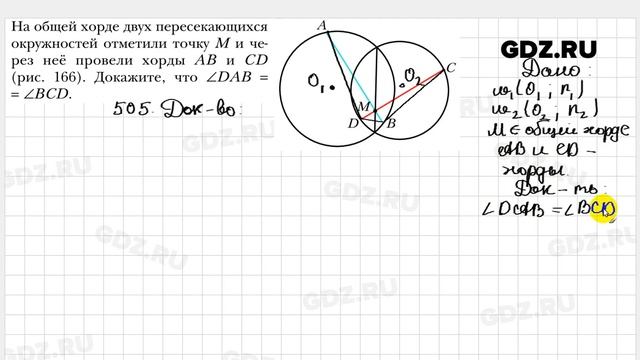 На общей хорде двух пересекающихся
окружностей отметили точку M и че-
рез неё провели хорды AB и CD
(рис. 166). Докажите, что ∠DAB =
= ∠BCD.
505. Док-во:
A
O₁
O₂
C
M
D
B
GDZ.RU
Дано:
w₁(O₁; r₁)
w₂(O₂; r₂)
M ∈ общей хорде
AB и CD –
хорды.
Док-ть:
∠DAB = ∠BCD
GDZ.RU
GDZ.RU
GDZ.RU
GDZ.RU